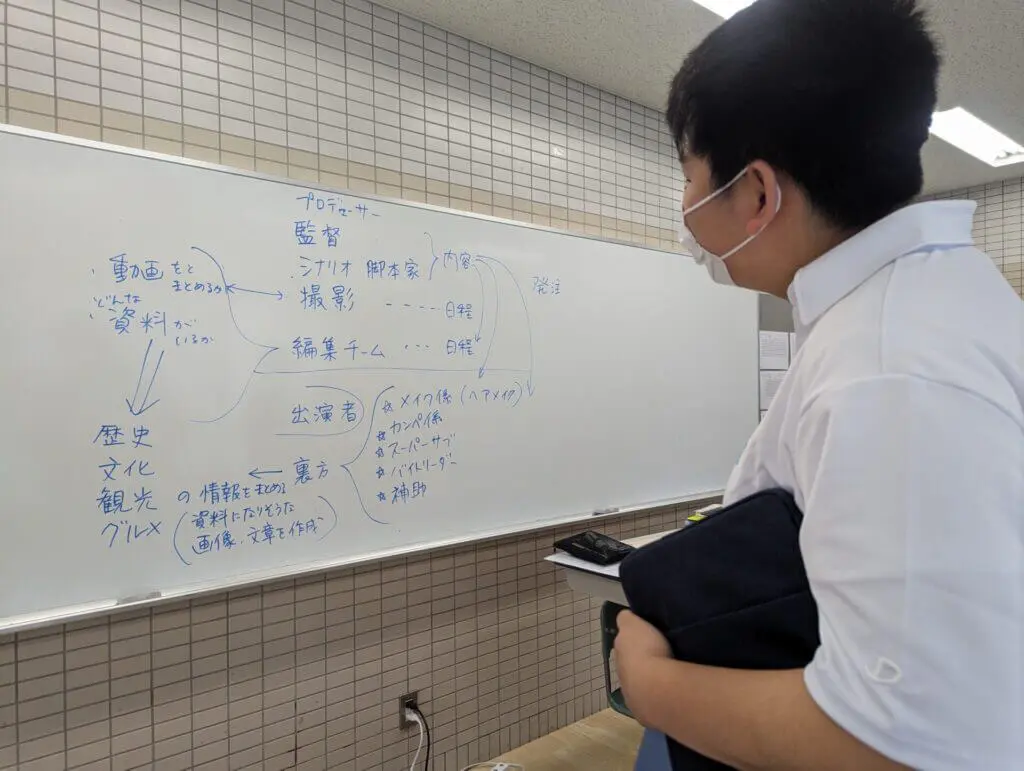 プロデューサー
監督
シナリオ 脚本家
内容
撮影 ---- 日程
編集チーム ... 日程
発注
・動画をどまとめるか
・どんな資料がいるか
歴史
文化
観光
グルメ
の情報をまとめる
(資料になりそうな
画像、文章を作成)
出演者
裏方
☆メイク係(ヘアメイク)
☆カンペ係
☆スーパーサブ
☆バイトリーダー
☆補助